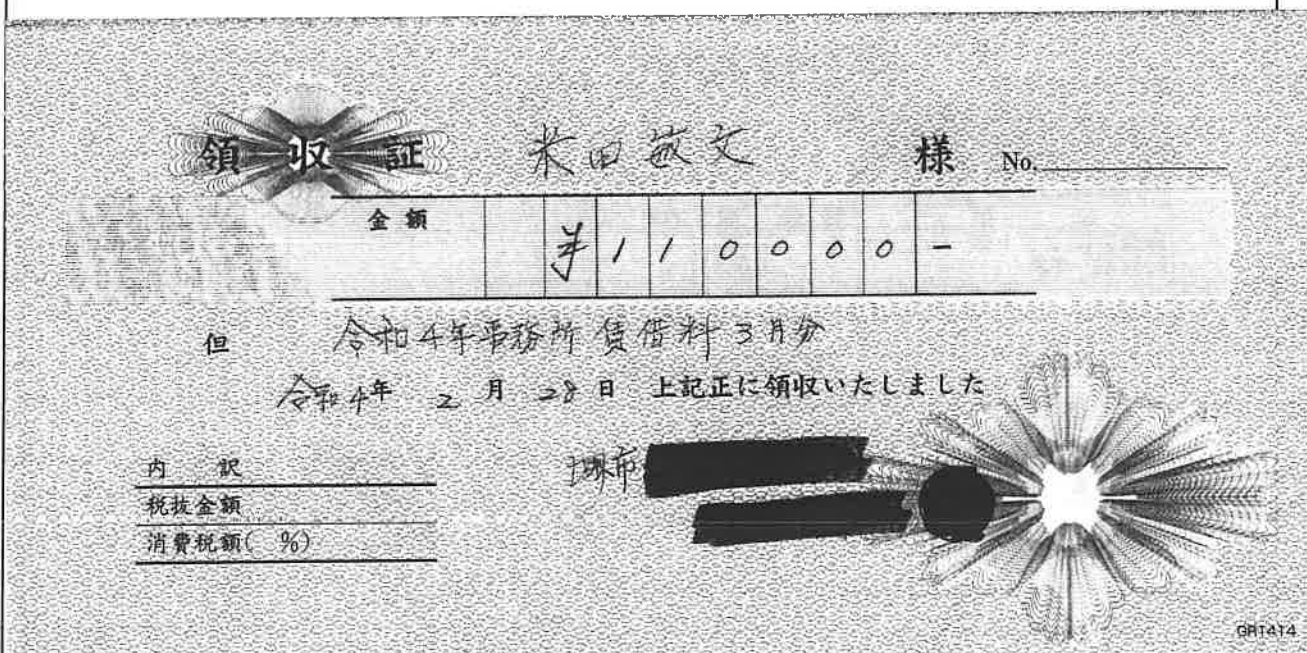 領収証 米田敏文 様 No.
金額 ¥110000-
但 令和4年事務所賃借料3月分
令和4年 2月28日 上記正に領収いたしました
堺市
内訳
税抜金額
消費税額( %)
GR1414